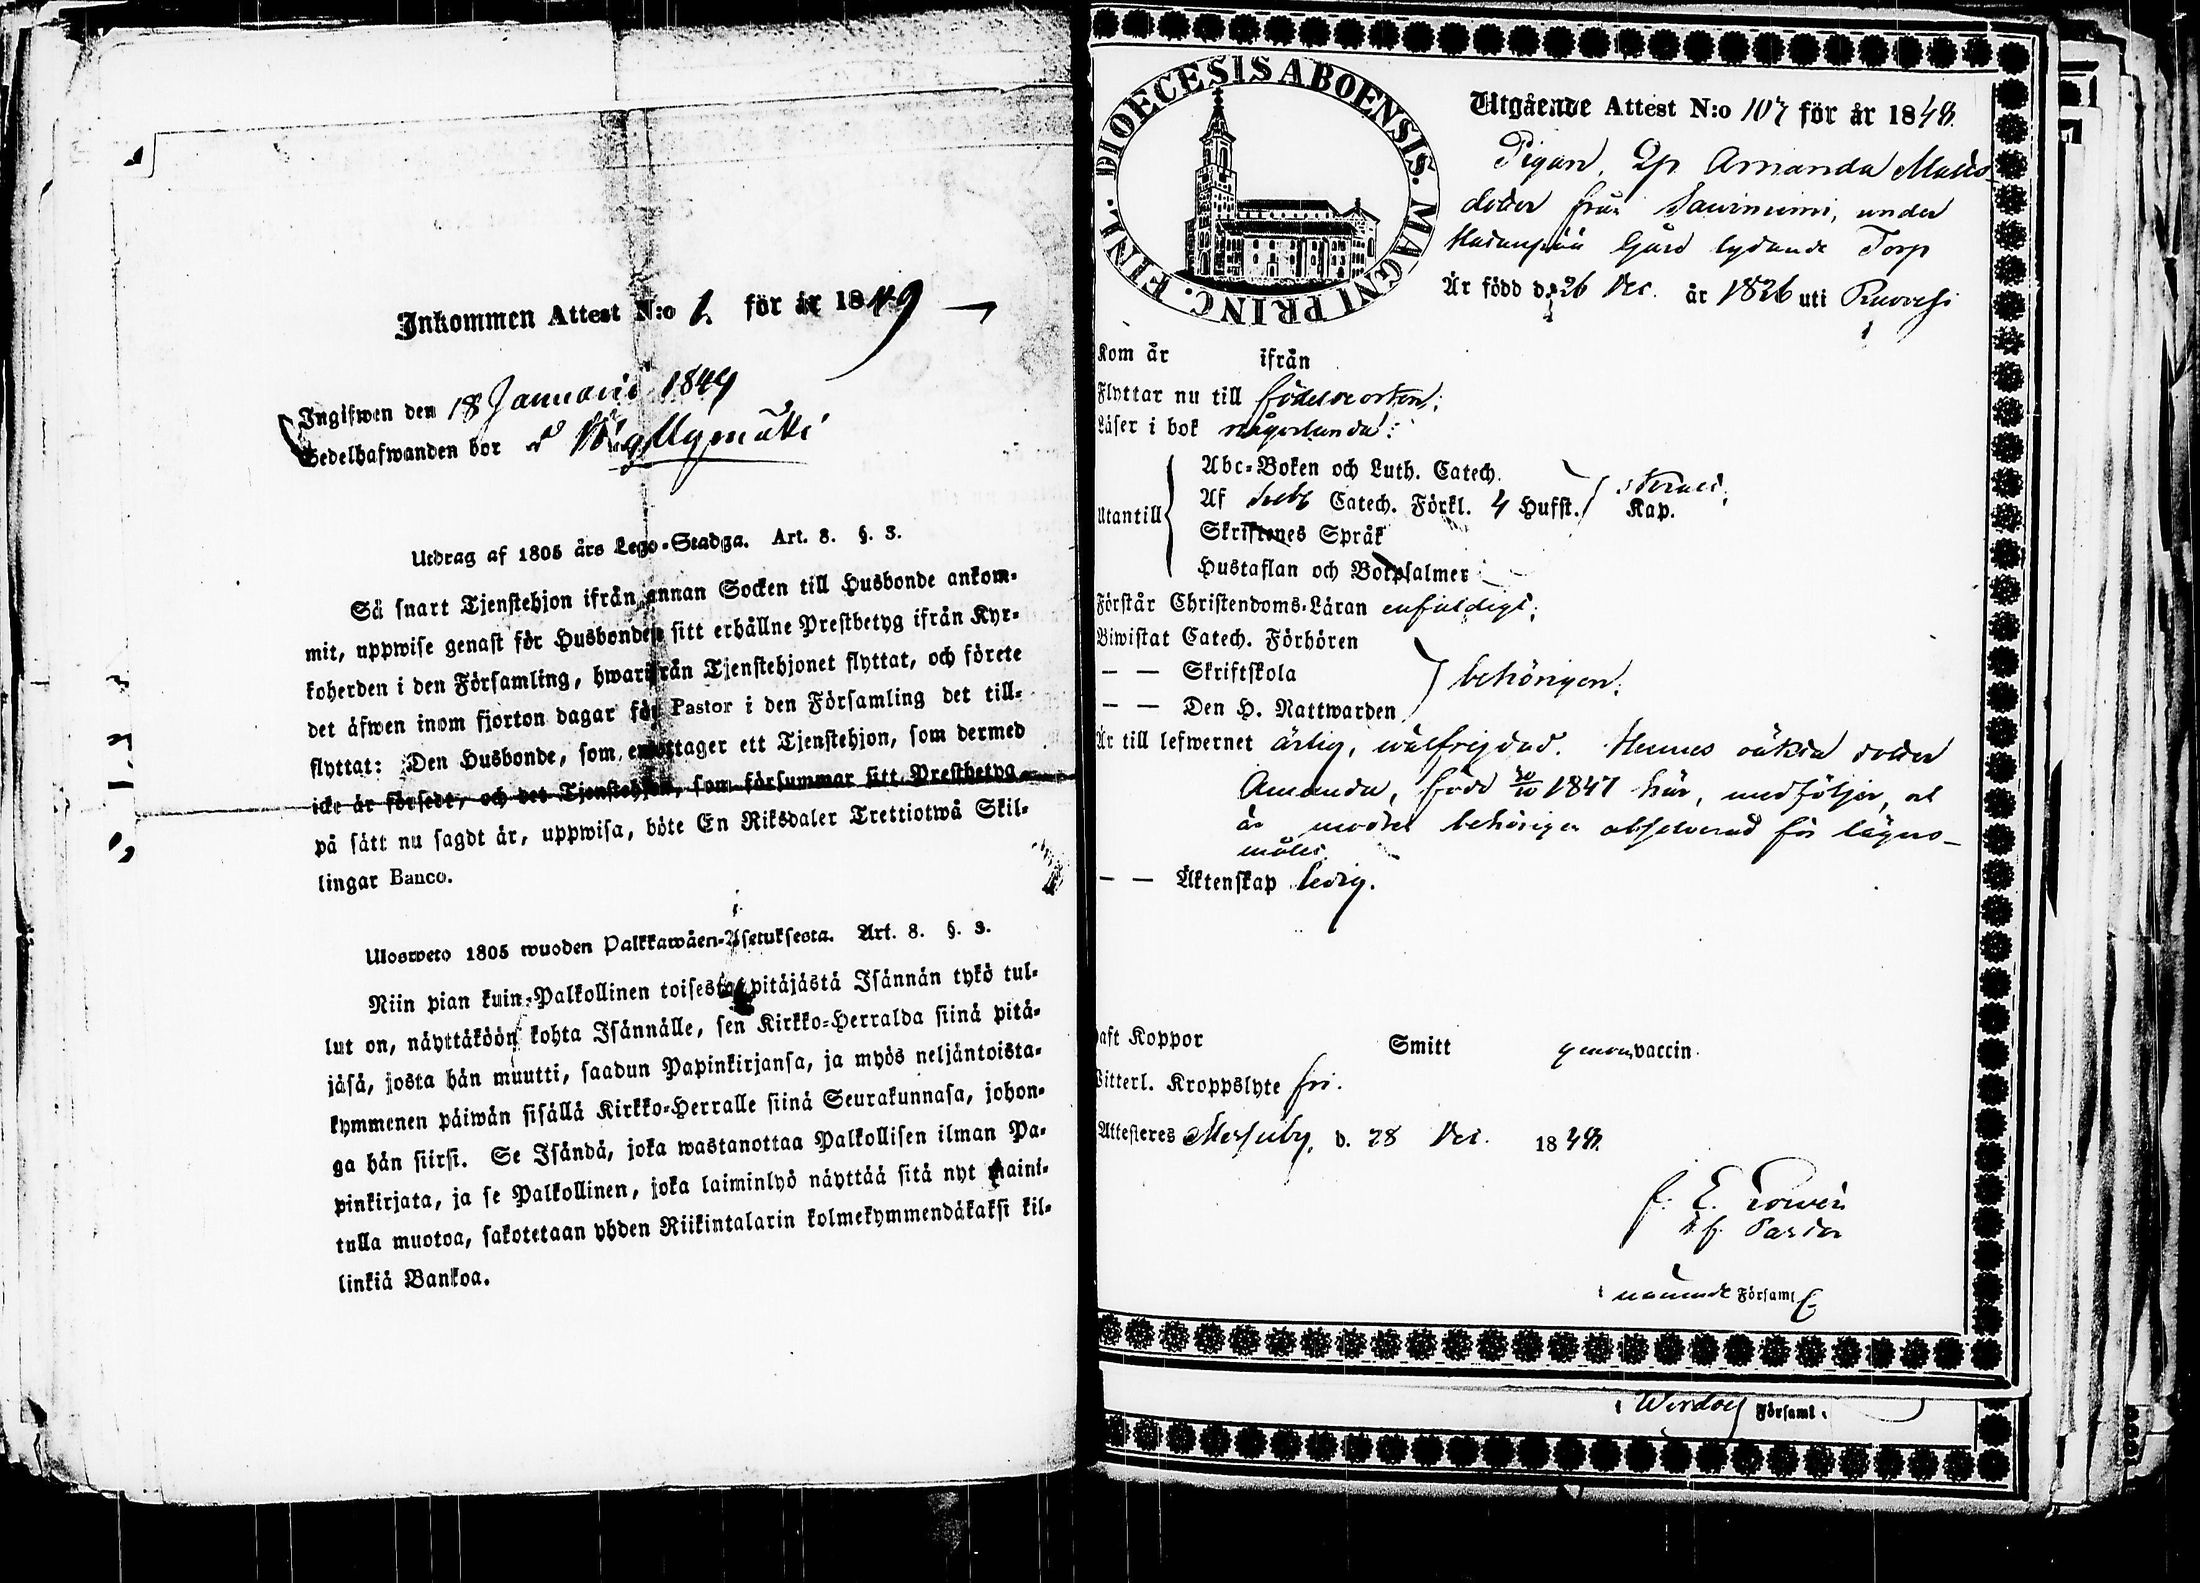 Inkommen Attest N:o 1. för år 1849
Ingifwen den 18 Januarii 1849
Sedelhafwanden bor
Utdrag af 1805 års Lego-Stadga. Art. 8. §. 3.
Så snart Tjenstehjon ifrån annan Socken till Husbonde ankom-
mit, uppwise genast för Husbonden sitt erhållne Prestbetyg ifrån Kyr-
koherden i den Församling, hwarifrån Tjenstehjonet flyttat, och förete
det äfwen inom fjorton dagar för Pastor i den Församling det till-
flyttat: Den Husbonde, som emottager ett Tjenstehjon, som dermed
icke är försedt, och det Tjenstehjon, som försummar sitt Prestbetyg
på sätt nu sagdt är, uppwisa, böte En Riksdaler Trettiotwå Skil-
lingar Banco.
Ulosweto 1805 wuoden Palkkawäen-Asetuksesta. Art. 8. §. 3.
Niin pian kuin Palkollinen toisesta pitäjästä Isännän tykö tul-
lut on, näyttäköön kohta Isännälle, sen Kirkko-Herralda siinä pitä-
jäsä, josta hän muutti, saadun Papinkirjansa, ja myös neljäntoista-
kymmenen päiwän sisällä Kirkko-Herralle siinä Seurakunnasa, johon-
ga hän siirsi. Se Isändä, joka wastanottaa Palkollisen ilman Pa-
pinkirjata, ja se Palkollinen, joka laiminlyö näyttää sitä nyt maini-
tulla muotoa, sakotetaan yhden Riikintalarin kolmekymmendäkaksi kil-
linkiä Bankoa.
DIOECESIS ABOENSIS. MAGNI PRINC. FINL.
Utgående Attest N:o 107 för år 1848.
Pigan, Amanda Matts-
dotter från under
Gård lydande Torp
Är född d. 26 Dec. år 1826 uti Ruovesi
Kom år ifrån
Flyttar nu till födelseorten.
Läser i bok någorlunda.
Abc-Boken och Luth. Catech.
Utantill Af Catech. Förkl. 4 Hufst. Kap.
Skriftenes Språk
Hustaflan och Botpsalmer
Förstår Christendoms-Läran enfaldigt.
Biwistat Catech. Förhören
— — Skriftskola behörigen.
— — Den H. Nattwarden
Är till lefwernet ärlig, wälfrejdad. Hennes oäkta dotter
Amanda, född 30/10 1847 här, medföljer, och
är modren behörigen absolverad för lägers-
målet.
— — Äktenskap ledig.
Haft Koppor Smitt genom vaccin.
Witterl. Kroppslyte fri.
Attesteras Messuby, d. 28 Dec. 1848.
Pastor
i nämnde Församl.
i Församl.